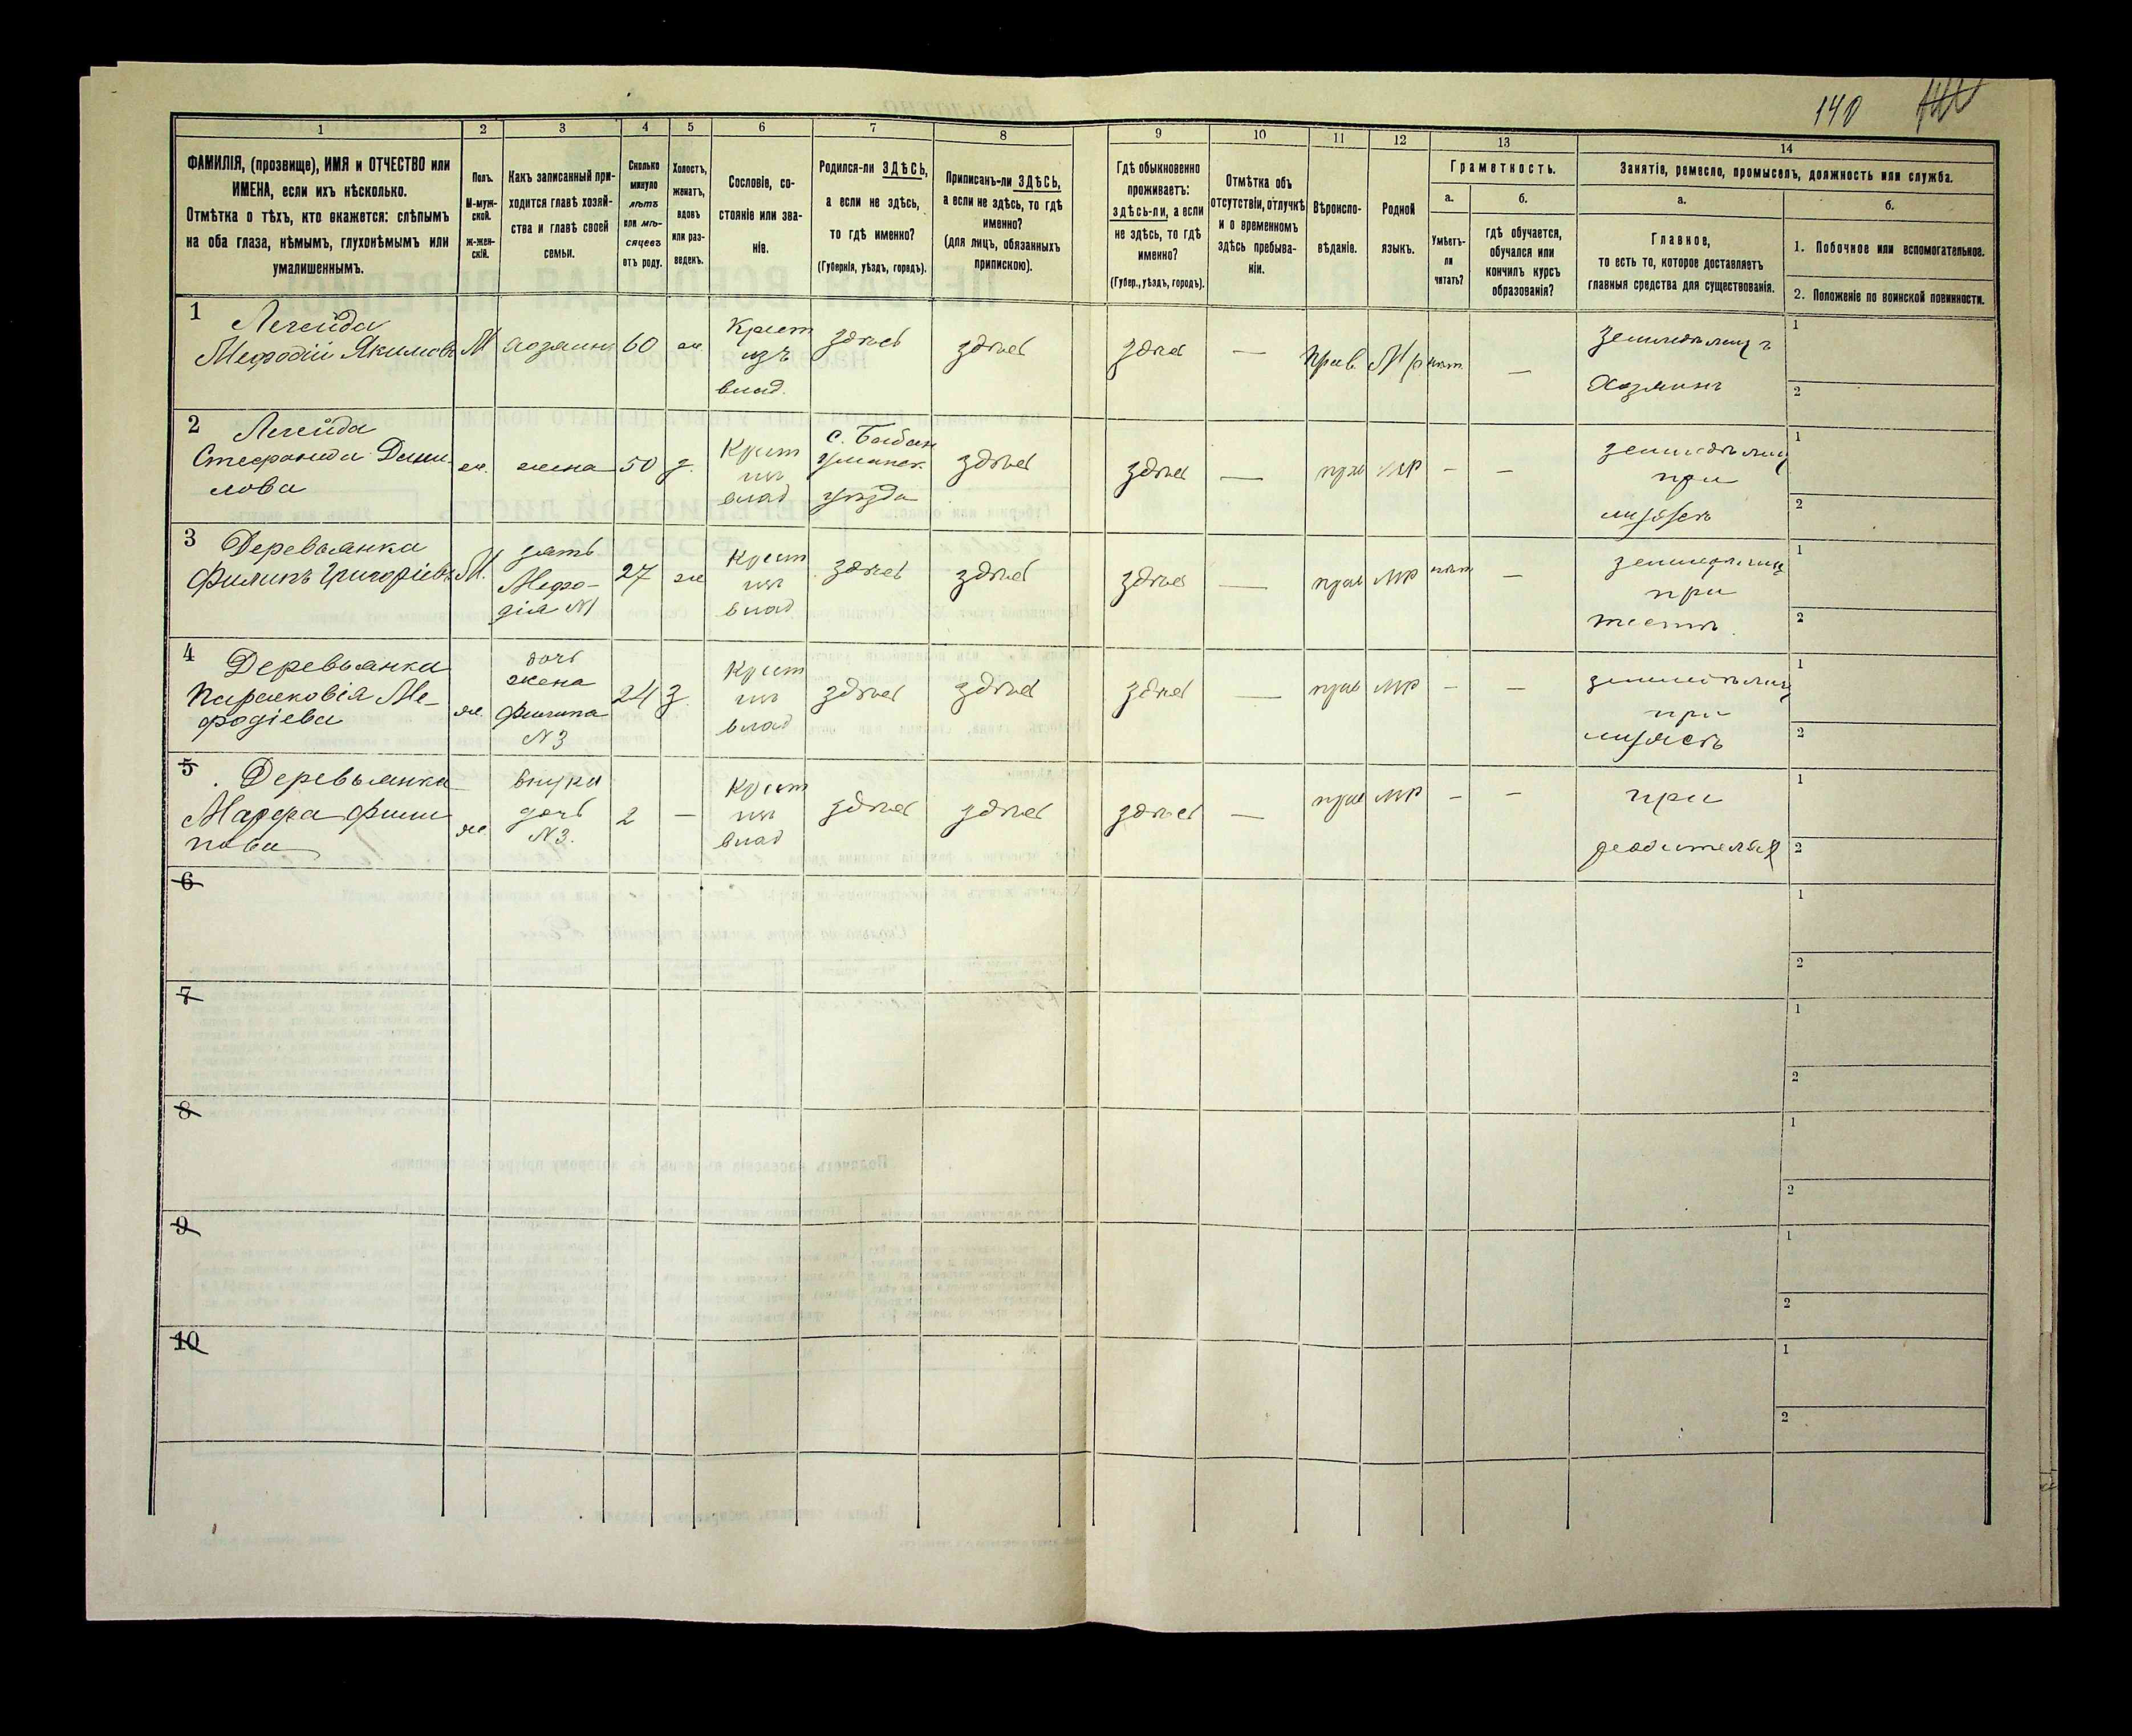 140
1 2 3 4 5 6 7 8 9 10 11 12 13 14
ФАМИЛІЯ, (прозвище), ИМЯ и ОТЧЕСТВО или
ИМЕНА, если ихъ нѣсколько.
Отмѣтка о тѣхъ, кто окажется: слѣпымъ
на оба глаза, нѣмымъ, глухонѣмымъ или
умалишеннымъ.
Полъ.
М-муж-
ской.
ж-жен-
скій.
Какъ записанный при-
ходится главѣ хозяй-
ства и главѣ своей
семьи.
Сколько
минуло
лѣтъ
или мѣ-
сяцевъ
отъ роду.
Холостъ,
женатъ,
вдовъ
или раз-
веденъ.
Сословіе, со-
стояніе или зва-
ніе.
Родился-ли ЗДѢСЬ,
а если не здѣсь,
то гдѣ именно?
(Губернія, уѣздъ, городъ).
Приписанъ-ли ЗДѢСЬ,
а если не здѣсь, то гдѣ
именно?
(для лицъ, обязанныхъ
припискою).
Гдѣ обыкновенно
проживаетъ:
здѣсь-ли, а если
не здѣсь, то гдѣ
именно?
(Губер., уѣздъ, городъ).
Отмѣтка объ
отсутствіи, отлучкѣ
и о временномъ
здѣсь пребыва-
ніи.
Вѣроиспо-
вѣданіе.
Родной
языкъ.
Грамотность.
а.
Умѣетъ-
ли
читать?
б.
гдѣ обучается,
обучался или
кончилъ курсъ
образованія?
Занятіе, ремесло, промыселъ, должность или служба.
а.
Главное,
то есть то, которое доставляетъ
главныя средства для существованія.
б.
1. Побочное или вспомогательное.
2. Положеніе по воинской повинности.
1 Легейда
Мефодій Якимовъ
М
хозяинъ
60
ж.
Крест
изъ
влад.
здѣсь
здѣсь
здѣсь
—
Прав.
М р
нѣт
—
земледѣлецъ
Хозяинъ
1
2
2 Легейда
Стефанида Дани
лова
ж.
жена
50
з.
Крест
из
влад
с. Бабан
Уманск.
уѣзда
здѣсь
здѣсь
—
прав
МР
—
—
земледѣлец
при
мужѣ
1
2
3 Деревьянка
Филипъ Григоріевъ
М.
зять
Мефо-
дія N1
27
ж
Крест
из
влад
здѣсь
здѣсь
здѣсь
—
прав
МР
нѣт
—
земледѣлец
при
тестѣ.
1
2
4 Деревьянка
Парасковія Ме-
фодіева
ж.
дочь
жена
Филипа
N3
24
з.
Крест
из
влад
здѣсь
здѣсь
здѣсь
—
прав
МР
—
—
земледѣлец
при
мужѣ
1
2
5 Деревьянка
Марфа Фили
пова
ж.
внука
дочь
N3.
2
—
Крест
из
влад
здѣсь
здѣсь
здѣсь
—
прав
МР
—
—
при
родителях
1
2
6
1
2
7
1
2
8
1
2
9
1
2
10
1
2